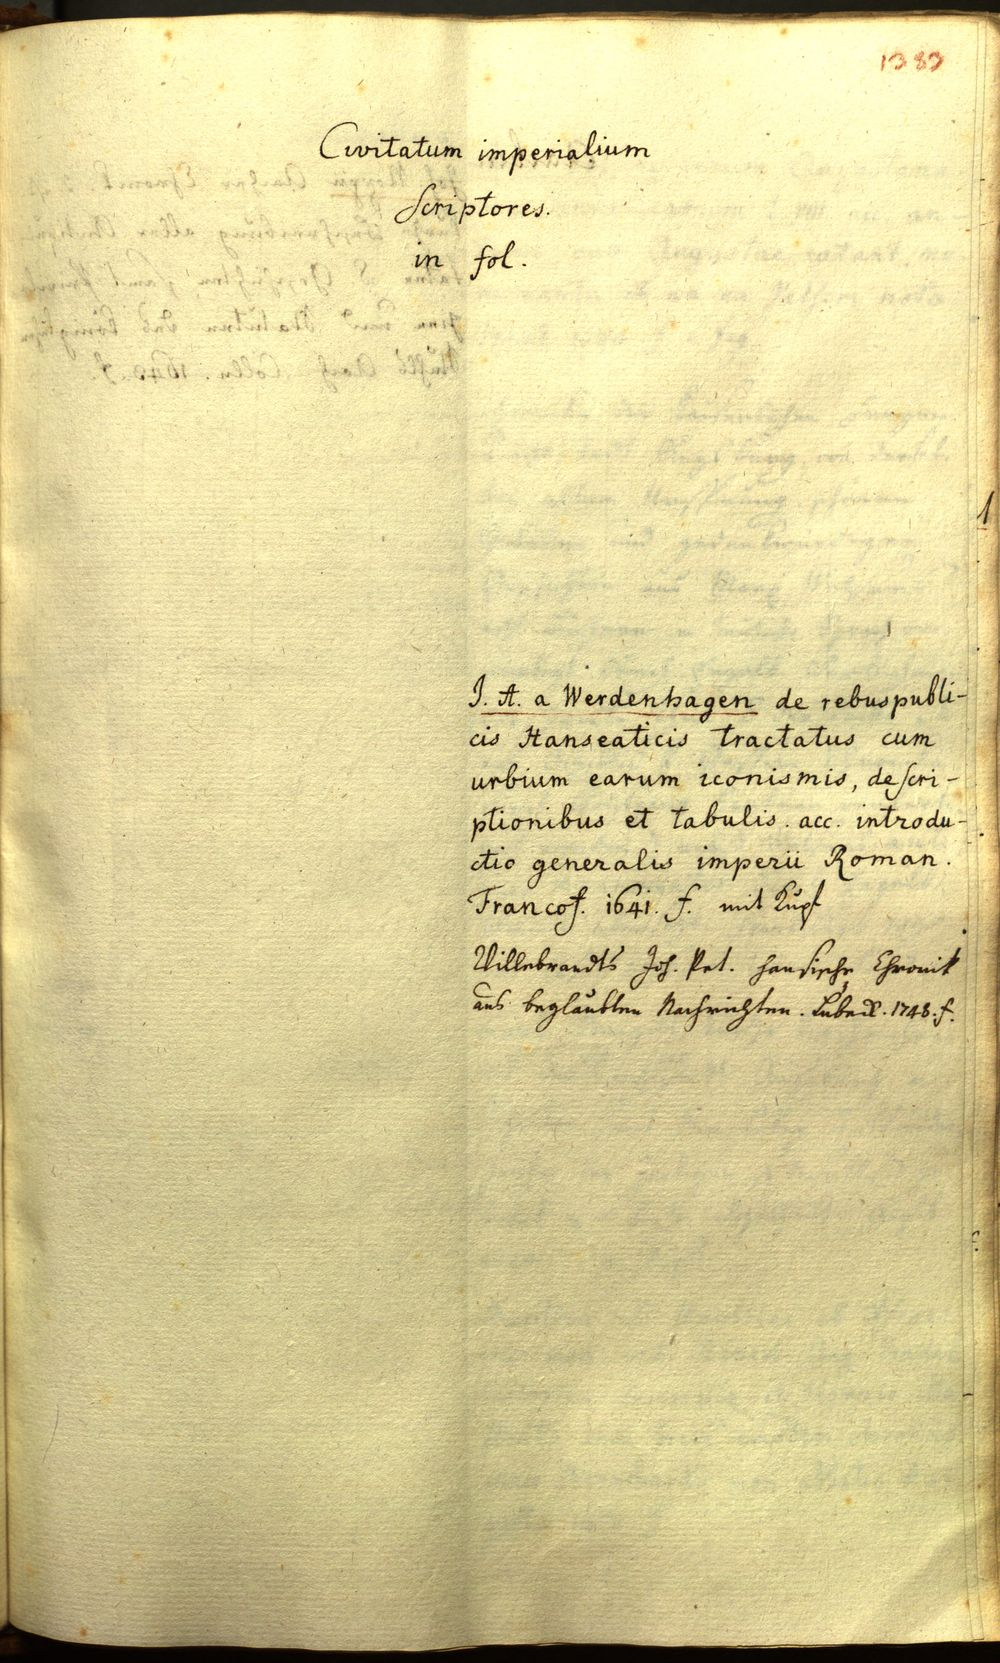 1089
Civitatum imperialium
Scriptores.
in fol.
J. A. a Werdenhagen de rebuspubli-
cis Hanseaticis tractatus cum
urbium earum iconismis, descri-
ptionibus et tabulis. acc. introdu-
ctio generalis imperii Roman.
Francof. 1641. f. mit Kupf
Willebrandts Joh. Pet. hansische Chronik
aus beglaubten Nachrichten. Lübeck. 1748. f.